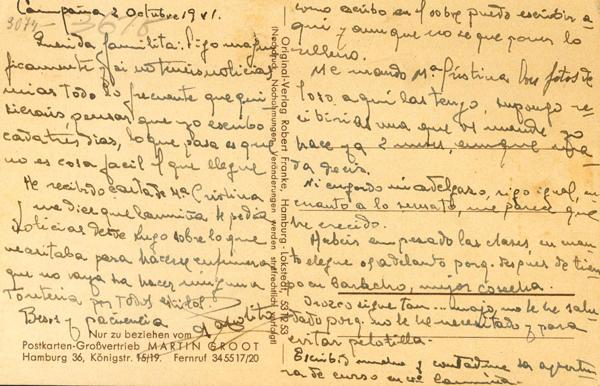 Campaña 2 Octubre 1941.
3074
Querida familita: Sigo magní
ficamente y si no teneis noticias
mias todo lo frecuente que qui
sierais, pensar que yo escribo
cada tres dias, lo que pasa es que
no es cosa facil el que llegue
He recibido carta de Mª Cristina
y me dice que la niña le pedia
noticias desde Lugo sobre lo que
necesitaba para hacerse enfermera
que no vaya ha hacer ninguna
tonteria por todos estilos
Besos y paciencia
Nur zu beziehen vom
Postkarten-Großvertrieb MARTIN GROOT
Hamburg 36, Königstr. 15/19. Fernruf 34 55 17/20
Original-Verlag Robert Franke, Hamburg-Lokstedt, 53 12 53
(Nachdruck, Nachahmungen, Veränderungen werden strafrechtlich verfolgt)
como escribo en el sobre puedo escribir a
qui y aunque no se que poner lo
relleno.
Me mando Mª Cristina dos fotos de
, aqui las tengo, supongo re
cibirias una que os mande yo
hace ya 2 meses, aunque
Ni engordo ni adelgazo, sigo igual, en
cuanto a lo me parece que
he crecido.
Habeis empezado las clases, en cuan
to llegue os adelanto porq. despues de tien
po en barbecho, mejor cosecha.
Orozco sigue tan... majo, no le he salu
dado porq. no le he necesitado y para
evitar pelotilla.
Escribid mucho y contadme la apertu
ra de curso en